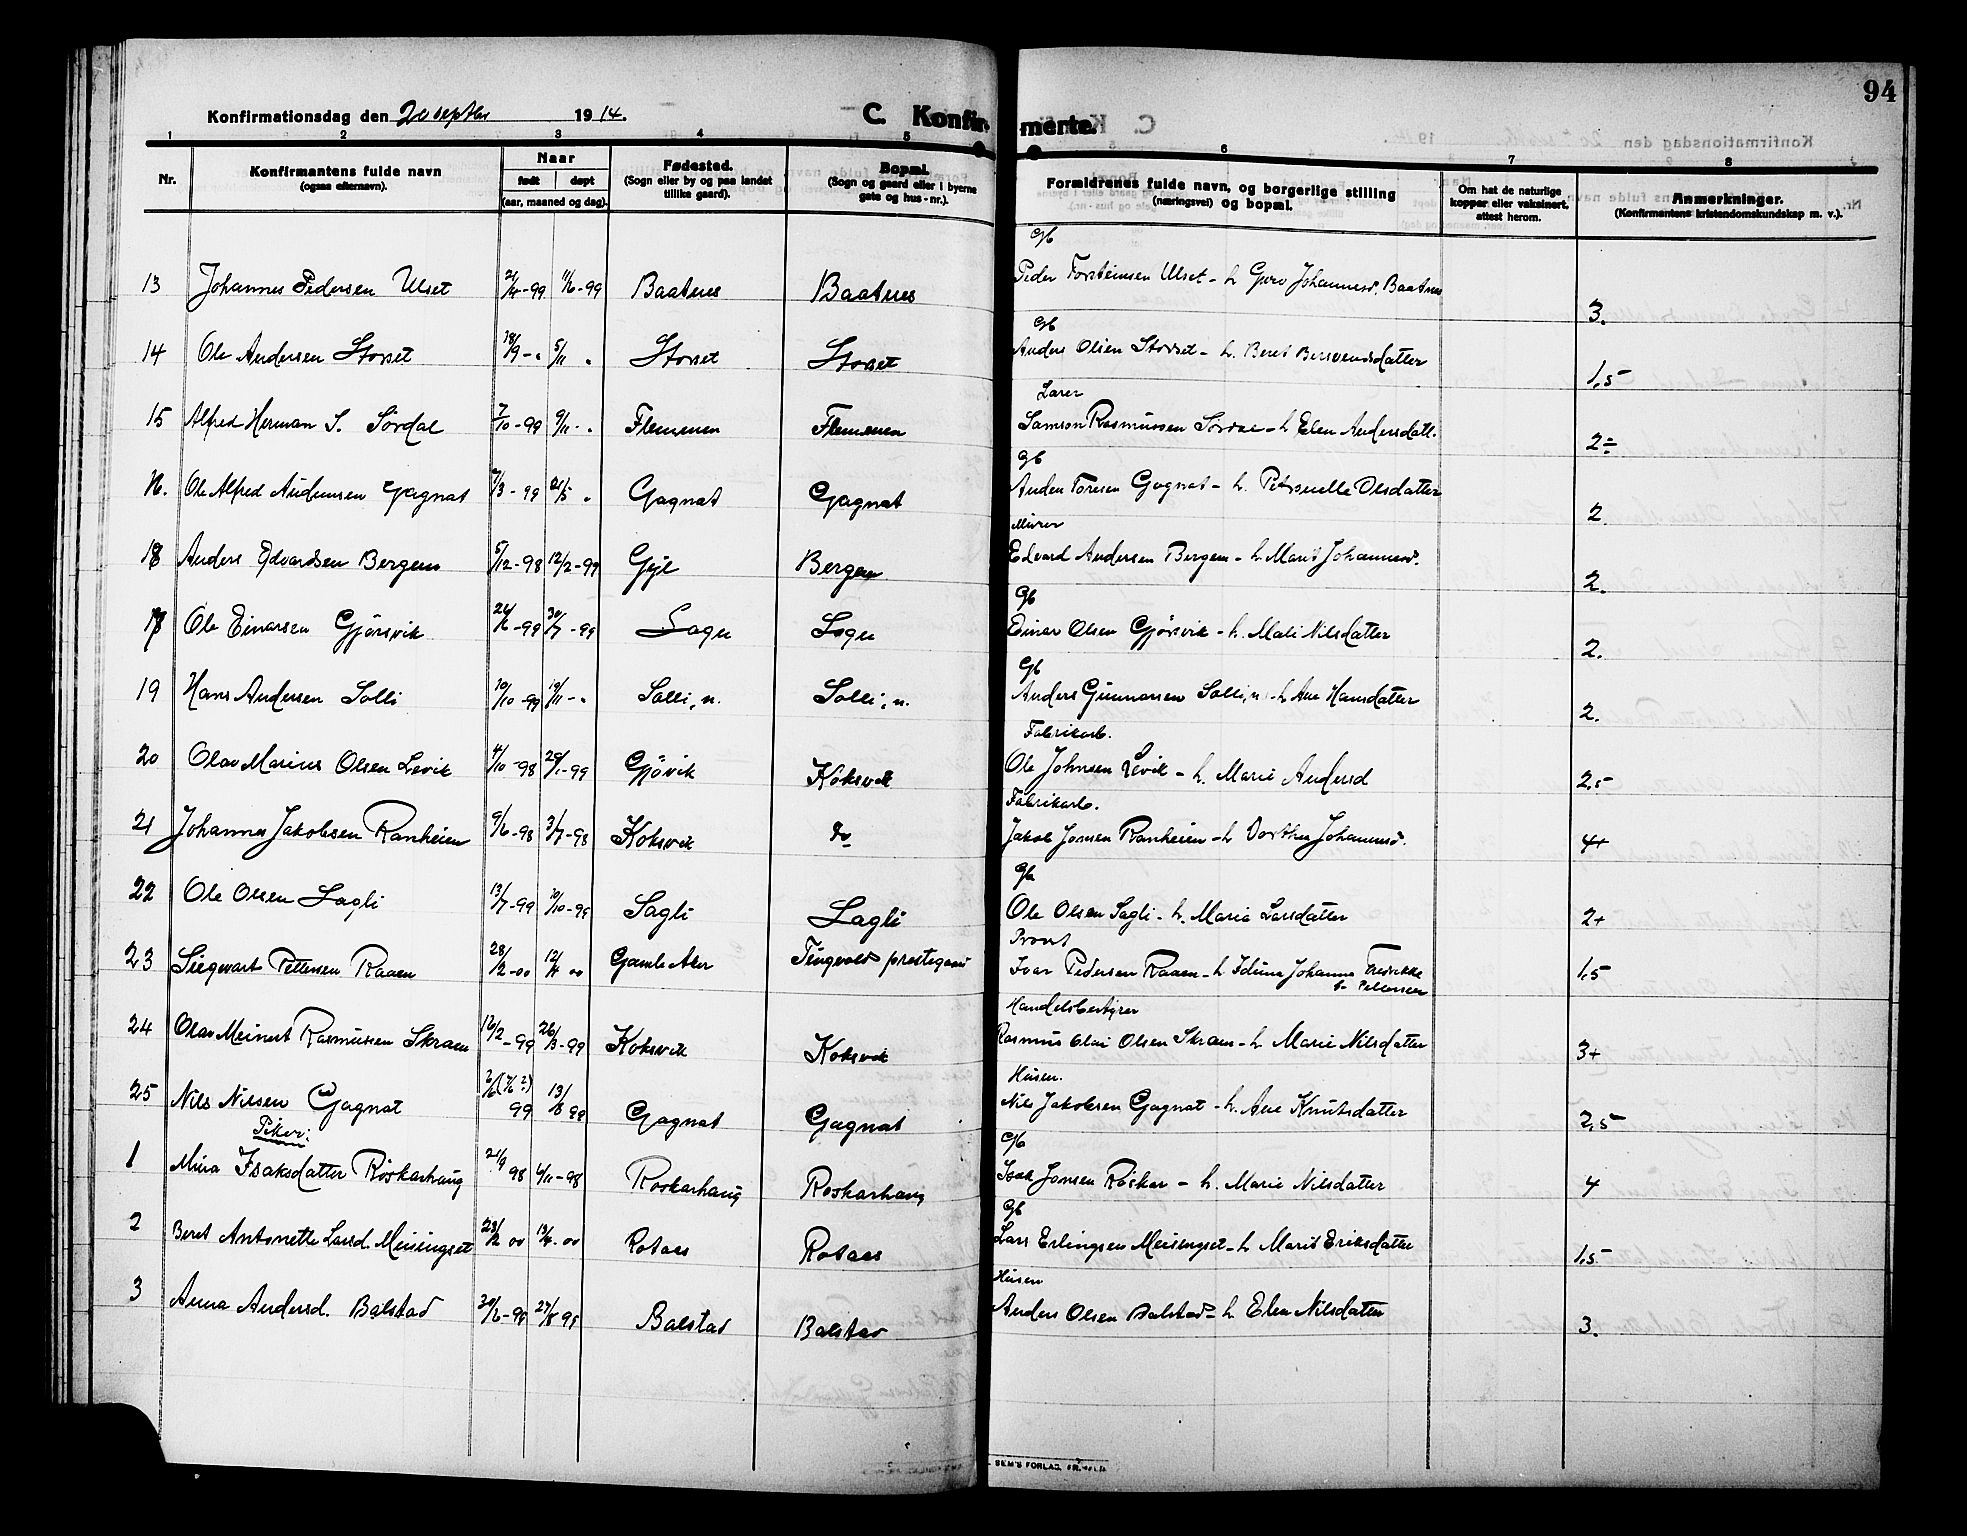 94
Konfirmationsdag den 20 septbr 1914. C. Konfirmerte.
1 2 3 4 5 6 7 8
Nr. Konfirmantens fulde navn (ogsaa efternavn). Naar født døpt (aar, maaned og dag). Fødested. (Sogn eller by og paa landet tillike gaard). Bopæl. (Sogn og gaard eller i byerne gate og hus-nr.). Forældrenes fulde navn, og borgerlige stilling (næringsvei) og bopæl. Om hat de naturlige kopper eller vaksinert, attest herom. Anmerkninger. (Konfirmantens kristendomskundskap m. v.).
Gb
13 Johannes Pedersen Ulset 21/4-99 11/6-99 Baatnes Baatnes Peder Torsteinsen Ulset - h. Guro Johannesd. Baatnes 3.
Gb
14 Ole Andersen Storset 18/9-" 5/11 " Storset Storset Anders Olsen Storset - h. Beret Bersvendsdatter 1,5
Lærer
15 Alfred Herman S. Sørdal 7/10-99 9/11-" Flemmen Flemmen Samson Rasmussen Sørdal - h. Elen Andersdatt. 2÷
Gb
16. Ole Alfred Audunsen Gagnat 7/3-99 21/5 " Gagnat Gagnat Auden Toresen Gagnat - h. Petronelle Olsdatter 2
Murer
18 Anders Edvardsen Bergem 5/12-98 12/2-99 Gyl Bergem Edvard Andersen Bergem - h. Marit Johannesd. 2.
Gb
17 Ole Einarsen Gjørsvik 26/6-99 30/7-99 Sagu Sagu Einar Olsen Gjørsvik - h. Mali Nilsdatter 2.
Gb
19 Hans Andersen Solli 10/10-99 19/11-" Solli, n. Solli, n. Anders Gunnarsen Solli, n - h. Ane Hansdatter 2.
Fabrikarb.
20 Olav Marius Olsen Levik 4/10-98 29/1-99 Gjøvik Koksvik Ole Johnsen Levik - h. Marie Andersd 2,5
Fabrikarb.
21 Johannes Jakobsen Ranheien 9/6-98 3/7-98 Koksvik do Jakob Jonsen Ranheien - h. Dorthea Johannesd. 4+
Gb
22 Ole Olsen Sagli 13/7-99 10/10-99 Sagli Sagli Ole Olsen Sagli - h. Maria Larsdatter 2+
Prost
23 Siegwart Pettersen Raaen 28/2-00 12/4 00 Gamle Aker Tingvold prestegaard Ivar Pedersen Raaen - h. Iduna Johanne Fredrikke f. Pettersen 1,5
Handelsbestyrer
24 Olav Meinert Rasmussen Skram 16/2-99 26/3-99 Koksvik Koksvik Rasmus Olai Olsen Skram - h. Marie Nilsdatter 3+
Husm.
25 Nils Nilsen Gagnat 2/6 (7/6?) 99 13/8 99 Gagnat Gagnat Nils Jakobsen Gagnat - h. Ane Knutsdatter 2,5
Piker:
Gb
1 Mina Isaksdatter Røskarhaug 21/9 98 4/11-98 Roskarhaug Roskarhaug Isak Jonsen Røskar - h. Marie Nilsdatter 4
Gb
2 Beret Antonette Larsd. Meisingset 23/2 00 13/4-00 Rotaas Rotaas Lars Erlingsen Meisingset - h. Marit Eriksdatter 1,5
Husm
3 Anna Andersd. Balstad 30/6-98 27/8 98 Balstad Balstad Anders Olsen Balstad - h. Elen Nilsdatter 3.
SEM'S FORLAG,